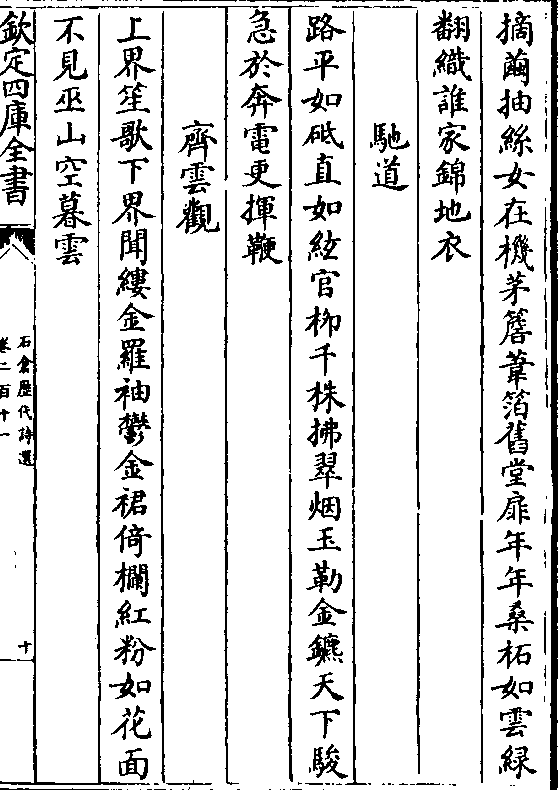 摘繭抽絲女在機茅簷葦箔舊堂扉年年桑柘如雲緑
翻織誰家錦地衣
馳道
路平如砥直如絃官柳千株拂翠烟玉勒金鑣天下駿
急於奔電更揮鞭
齊雲觀
上界笙歌下界聞縷金羅袖鬱金裙倚欄紅粉如花面
不見巫山空暮雲
欽定四庫全書
石倉歷代詩選
卷二百十一
十